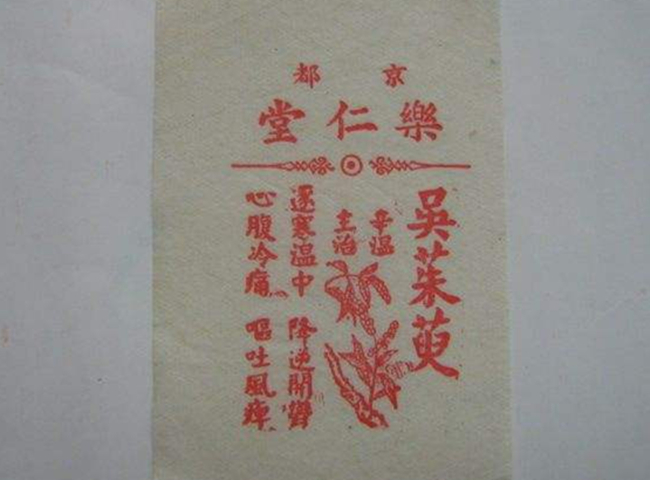 京都
樂仁堂
吳茱萸
辛溫
主治
逐寒溫中 降逆開鬱
心腹冷痛 嘔吐風痺